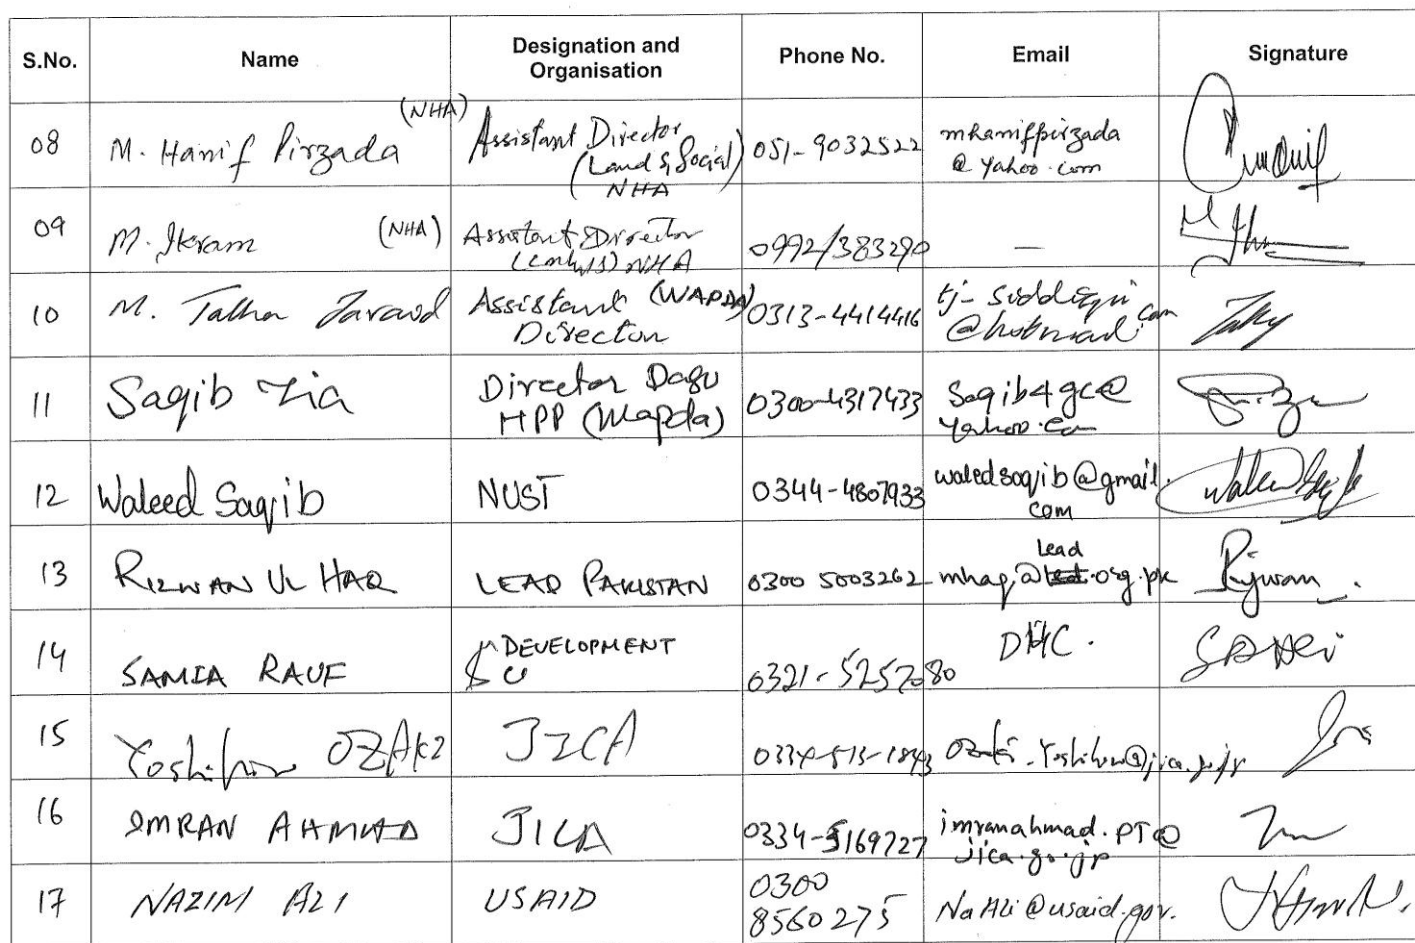 S.No. Name Designation and Organisation Phone No. Email Signature
08 M. Hanif Pirzada (NHA) Assistant Director (Land & Social) NHA 051-9032522 mhanifpirzada@yahoo.com
09 M. Ikram (NHA) Assistant Director NHA 0992/383290 —
10 M. Talha Javaid Assistant (WAPDA) Director 0313-4414416
11 Saqib Zia Director Dasu HPP (Wapda) 0300-4317433 Saqib4gc@yahoo.com
12 Waleed Saqib NUST 0344-4807933 waledsaqib@gmail.com
13 RIZWAN UL HAQ LEAD PAKISTAN 0300 5003262 mhaq@lead.org.pk
14 SAMIA RAUF DEVELOPMENT 0321-5257280 DHC.
15 OZAKI JICA
16 IMRAN AHMAD JICA 0334-5169727 imranahmad.PT@jica.go.jp
17 NAZIM ALI USAID 0300 8560275 NaAli@usaid.gov.